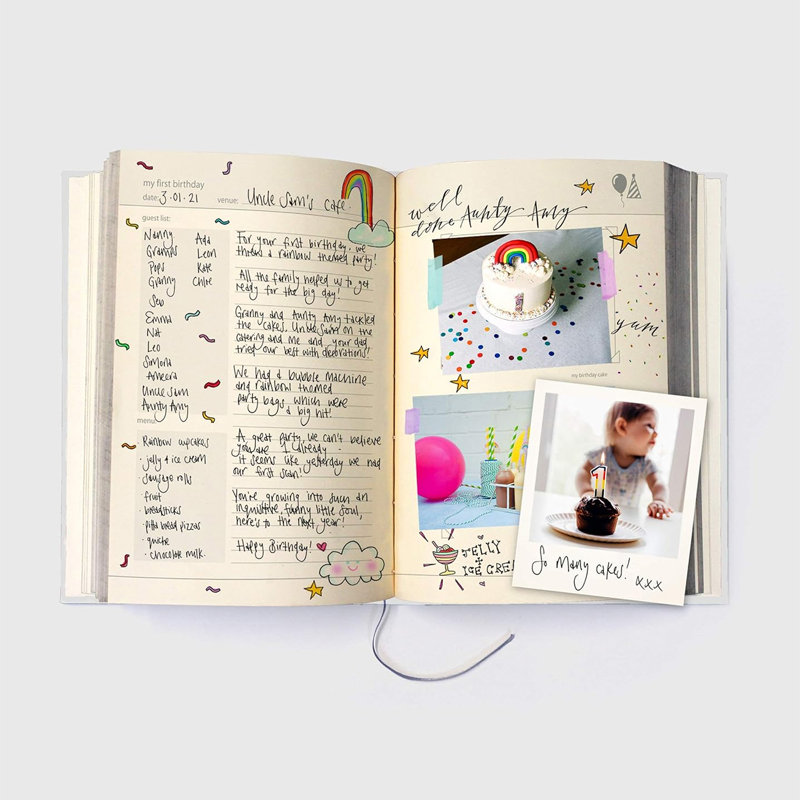 my first birthday
date: 3·01·21 venue: Uncle Sam's cafe.
guest list:
Nanny
Gramps
Pops
Granny
Sew
Emma
Nat
Leo
Simona
Ameera
Uncle Sam
Aunty Amy
Ada
Leon
Kate
Chloe
menu:
Rainbow cupcakes
· jelly & ice cream
· sausage rolls
fruit
· breadsticks
· pitta bread pizzas
· quiche
· chocolate milk.
For your first birthday, we
threw a rainbow themed party!
All the family helped us to get
ready for the big day!
Granny and Aunty Amy tackled
the cakes. Uncle Sam on the
catering and me and your dad
tried our best with decorations!
We had a bubble machine
and rainbow themed
party bags which were
a big hit!
A great party, we can't believe
you are 1 already -
it seems like yesterday we had
our first scan!
You're growing into such an
inquisitive, funny little soul,
here's to the next year!
Happy Birthday!
well
done Aunty Amy
1
yum
my birthday cake
JELLY
+
ICE CREA
1
So many cakes! xxx